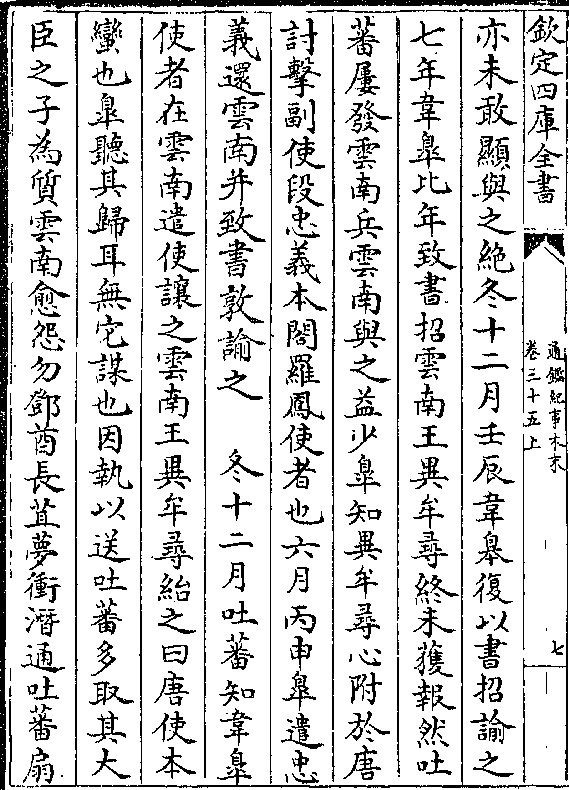 欽定四庫全書
通鑑紀事本末
卷三十五上
七
亦未敢顯與之絶冬十二月壬辰韋皐復以書招諭之
七年韋皐比年致書招雲南王異牟尋終未獲報然吐
蕃屢發雲南兵雲南與之益少皐知異牟尋心附於唐
討擊副使段忠義本閤羅鳳使者也六月丙申皐遣忠
義還雲南并致書敦諭之　冬十二月吐蕃知韋皐
使者在雲南遣使讓之雲南王異牟尋紿之曰唐使本
蠻也皐聽其歸耳無它謀也因執以送吐蕃多取其大
臣之子為質雲南愈怨勿鄧酋長苴夢衝潛通吐蕃扇